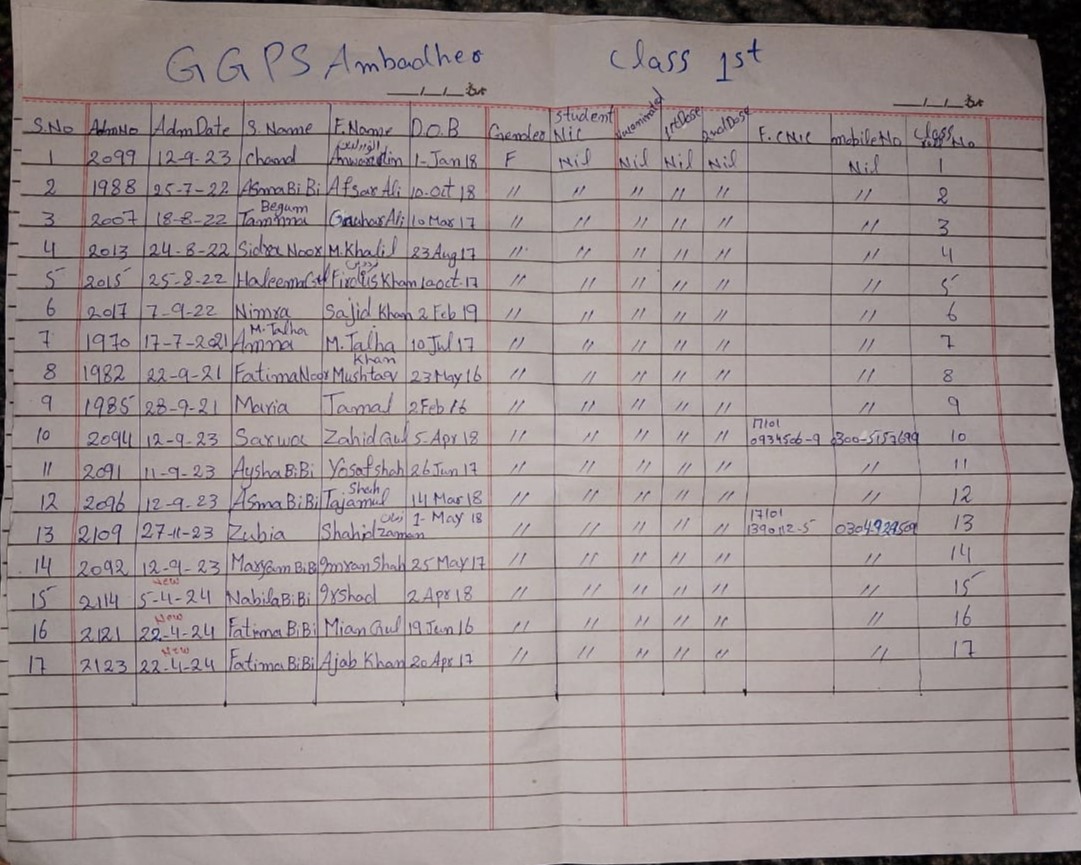 GGPS Ambadher Class 1st
S.No AdmNo AdmDate S.Name F.Name D.O.B Gender Student Nic 1stDose 2ndDose F.CNIC mobileNo Class No
1 2099 12-9-23 Chand 1-Jan 18 F Nil Nil Nil Nil Nil 1
2 1988 25-7-22 AsmaBiBi Afsar Ali 10-Oct 18 " " " " " " 2
3 2007 18-8-22 Begum GauharAli 10 Mar 17 " " " " " " 3
4 2013 24-8-22 Sidra Noor M.Khalil 23 Aug 17 " " " " " " 4
5 2015 25-8-22 Haleema Khan 10 oct-17 " " " " " " 5
6 2017 7-9-22 Nimra Sajid Khan 2 Feb 19 " " " " " " 6
7 1970 17-7-2021 M.Talha Amna M.Talha 10 Jul 17 " " " " " " 7
8 1982 22-9-21 FatimaNoor Khan Mushtaq 23 May 16 " " " " " " 8
9 1985 28-9-21 Maria Jamal 2 Feb 16 " " " " " " 9
10 2094 12-9-23 Zahid Gul 5 Apr 18 " " " " " 17101 0934506-9 0300-5157699 10
11 2091 11-9-23 AyshaBiBi Yosafshah 26 Jun 17 " " " " " " 11
12 2096 12-9-23 AsmaBiBi Shah Tajamul 14 Mar 18 " " " " " " 12
13 2109 27-11-23 Zubia Shahidzaman 1-May 18 " " " " " 17101 13
14 2092 12-9-23 MaryamBiBi Imran Shah 25 May 17 " " " " " " 14
15 2114 New 5-4-24 NabilaBiBi Irshad 2 Apr 18 " " " " " " 15
16 2121 New 22-4-24 Fatima BiBi Mian Gul 19 Jun 16 " " " " " " 16
17 2123 New 22-4-24 Fatima BiBi Ajab Khan 20 Apr 17 " " " " " " 17